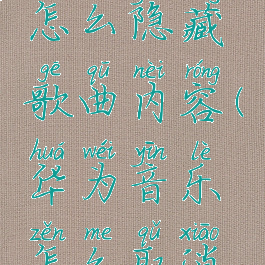 怎么隐藏
gē qū nèi róng
歌曲内容(
huá wéi yīn lè
华为音乐
zěn me qǔ xiāo
怎么取消